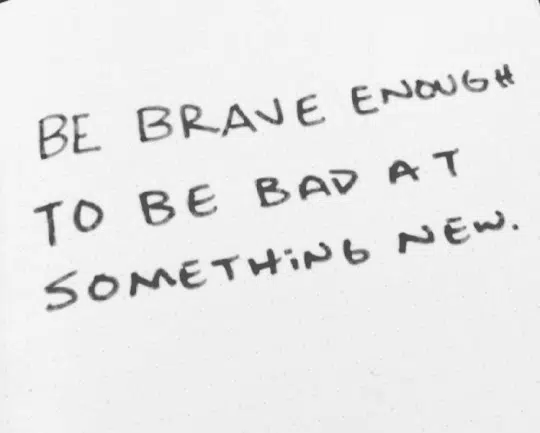 BE BRAVE ENOUGH
TO BE BAD AT
SOMETHiNG NEW.